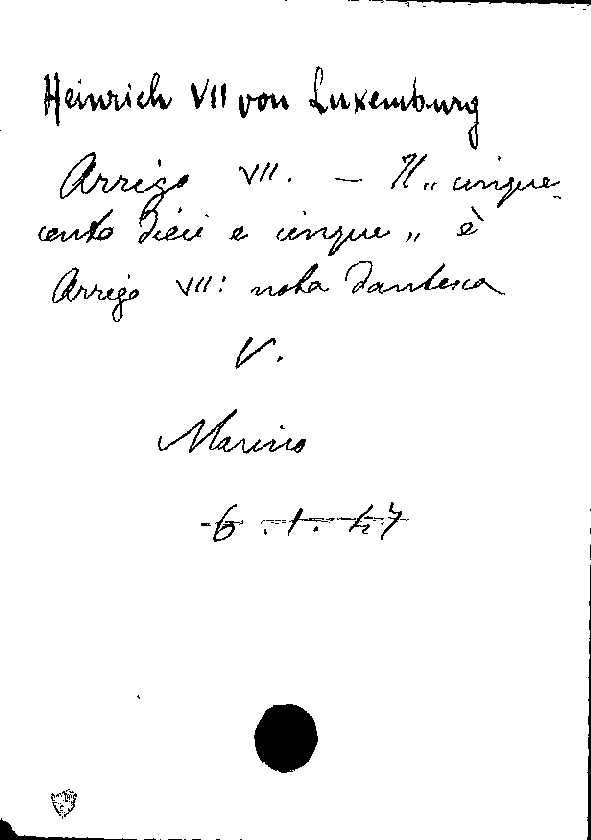 Heinrich VII von Luxemburg
Arrigo VII. — Il „cinque-
cento dieci e cinque„ è
Arrigo VII: nota dantesca
V.
Marino
6.1.47